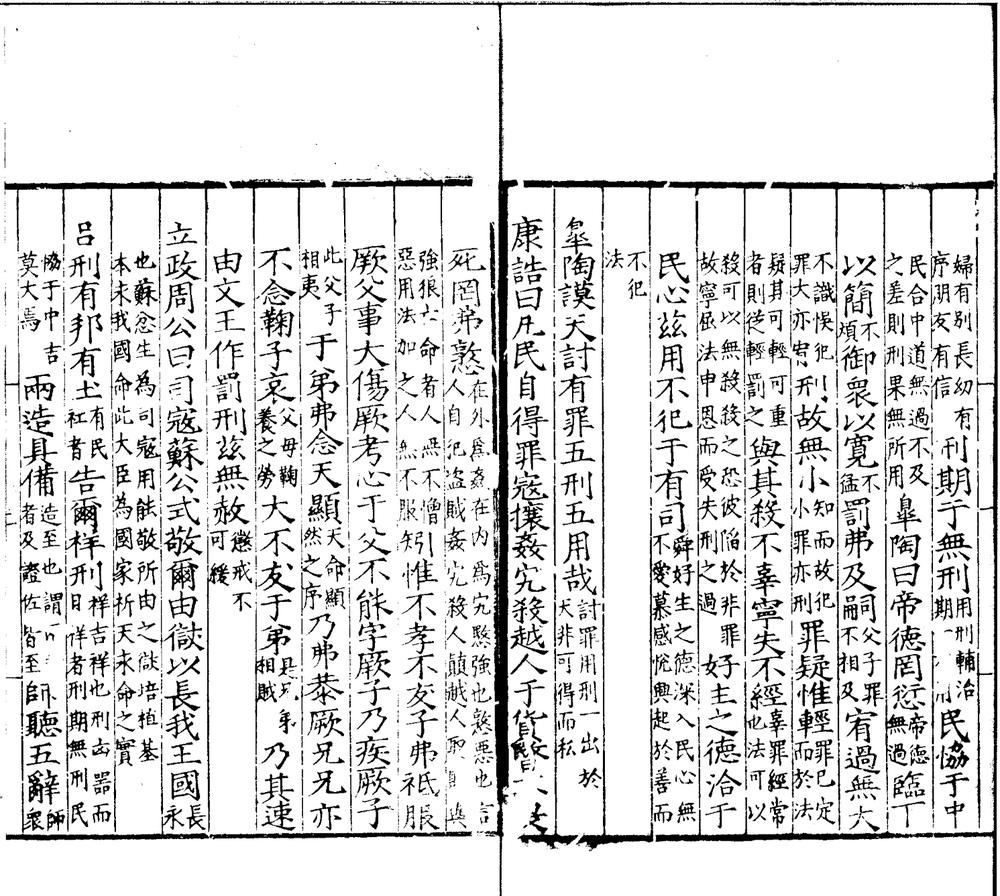 婦有別長幼有序朋友有信刑期于無刑用刑輔治期民協于中
民合中道無過不及之差則刑果無所用皐陶曰帝德罔愆帝德無過臨下
以簡不煩御衆以寛不猛罰弗及嗣父子罪不相及宥過無大
不識悞犯罪大亦宥刑故無小知而故犯小罪亦刑罪疑惟輕罪已定而於法
疑其可輕可重者則從輕罰之與其殺不辜寧失不經辜罪經常也法可以
殺可以無殺殺之恐彼陷於非罪故寧屈法申恩而受失刑之過好主之德洽于
民心茲用不犯于有司舜好生之德深入民心無不愛慕感悦興起於善而
不犯法
皐陶謨天討有罪五刑五用哉討罪用刑一出於天非可得而私
康誥曰凡民自得罪寇攘姦宄殺越人于貨暋
死罔弗憝在外爲姦在内爲宄暋強也憝惡也言人自犯盜賊姦宄殺人顛越人取
強狠亡命者人無不憎惡用法加之人無不服矧引惟不孝不友子弗祗服
厥父事大傷厥考心于父不能字厥子乃疾厥子
此父子相夷于弟弗念天顯天命顯然之序乃弗恭厥兄兄亦
不念鞠子哀父母鞠養之勞大不友于弟是兄弟相賊乃其速
由文王作罰刑茲無赦懲戒不可緩
立政周公曰司寇蘇公式敬爾由獄以長我王國長永
也蘇忿生爲司寇用能敬所由之獄培植基本未我國命此大臣為國家祈天永命之實
呂刑有邦有土有民社者告爾祥刑祥吉祥也刑凶器而刑曰祥者刑期無刑民
協于中吉莫大焉兩造具備造至也謂者及證佐皆至師聽五辭師衆